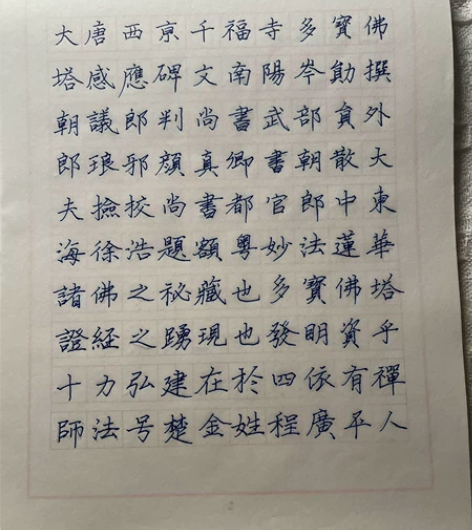 大唐西京千福寺多寶佛
塔感應碑文南陽岑勛撰
朝議郎判尚書武部貟外
郎琅邪顔真卿書朝散大
夫撿校尚書都官郎中東
海徐浩題額粤妙法蓮華
諸佛之祕藏也多寶佛塔
證経之踴現也發明資乎
十力弘建在於四依有禪
師法号楚金姓程廣平人